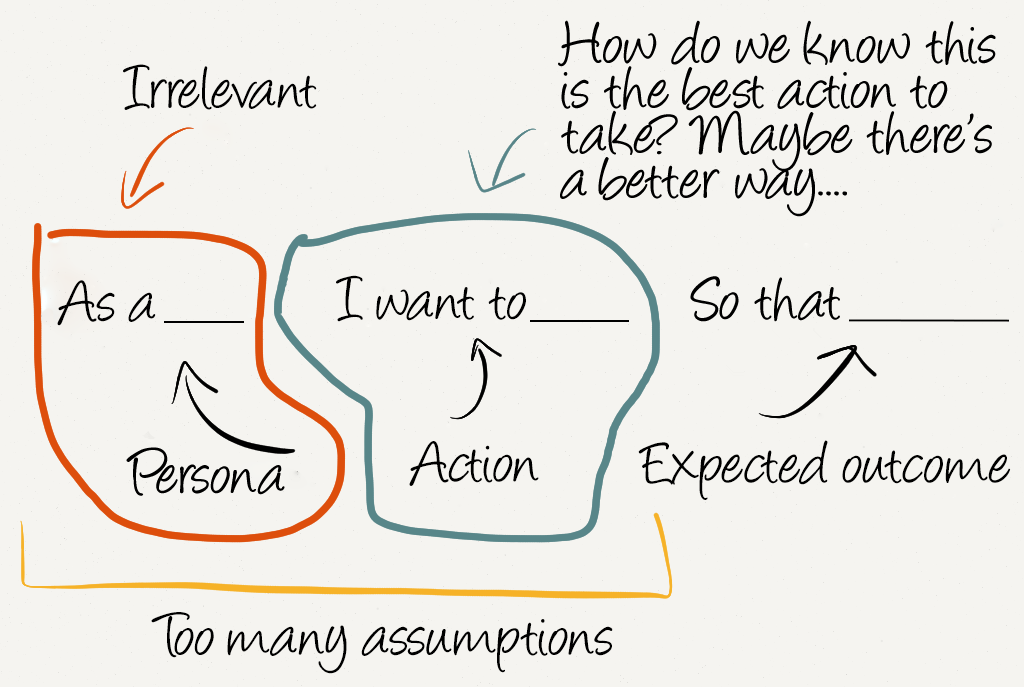 Irrelevant
How do we know this
is the best action to
take? Maybe there's
a better way....
As a ____
I want to _____
So that ________
Persona
Action
Expected outcome
Too many assumptions